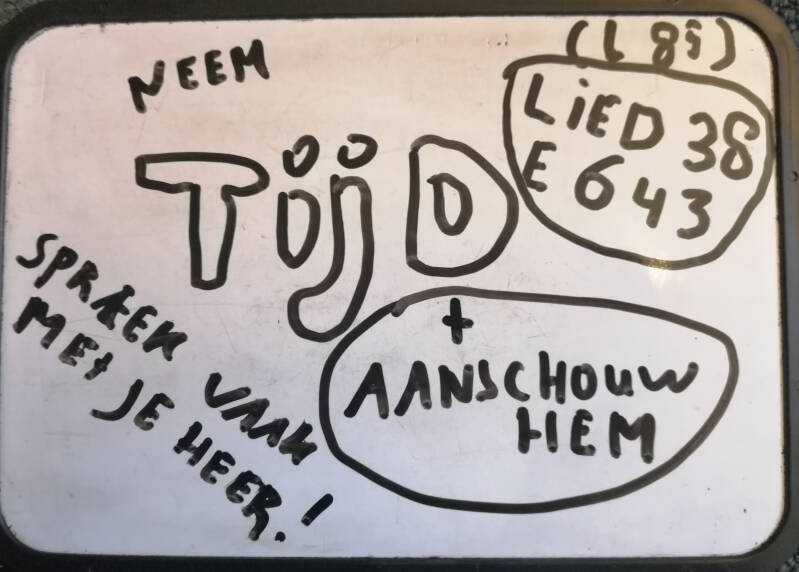 NEEM
TijD
(L 85)
LiED 38
E 643
SPREEK VAAK
MET JE HEER!
+
AANSCHOUW
HEM